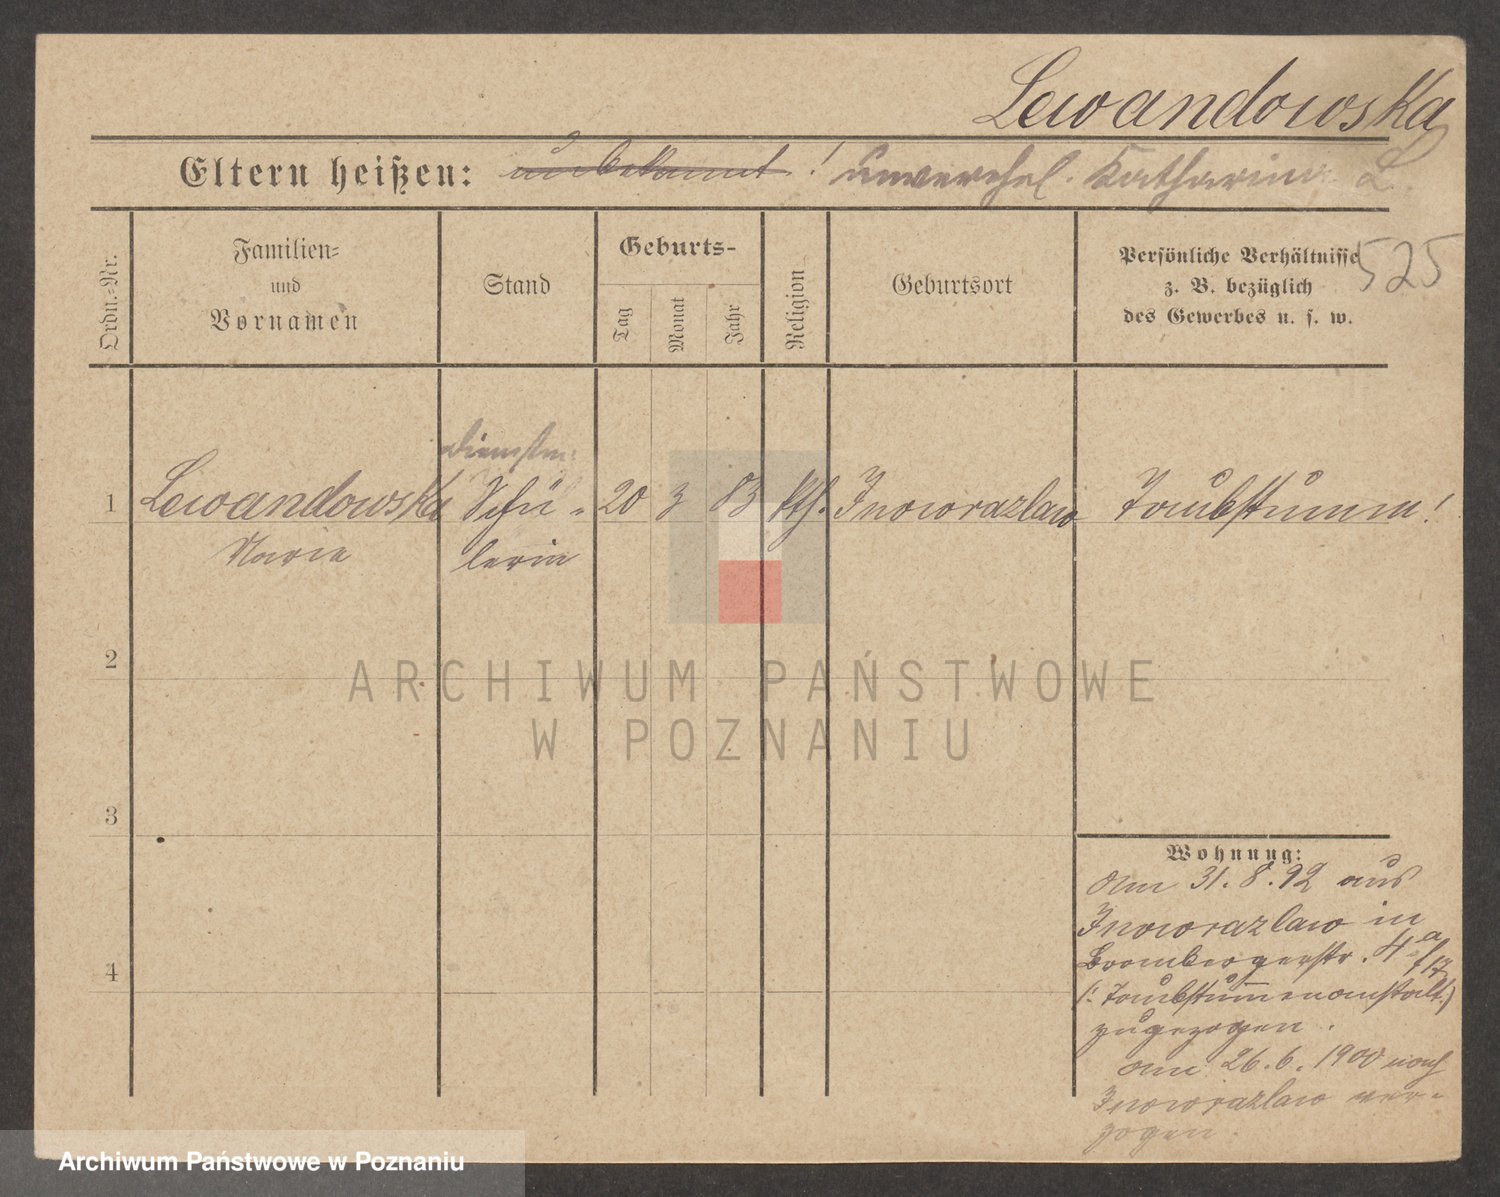 Lewandowska
Eltern heißen: unbekannt! unverehel. Katharina L.
Ordn.-Nr.
Familien-
und
Vornamen
Stand
Geburts-
Tag
Monat
Jahr
Religion
Geburtsort
Persönliche Verhältnisse
z. B. bezüglich
des Gewerbes u. s. w.
525
Dienstm.
1 Lewandowska Schü- 20 3 83 kth. Inowrazlaw Taubstumm!
Marie lerin
2
ARCHIWUM PAŃSTWOWE
W POZNANIU
3
4
Wohnung:
am 31.8.92 aus
Inowrazlaw in
Brombergerstr. 4a
(: Taubstummenanstalt:)
zugezogen.
am 26.6.1900 nach
Inowrazlaw ver-
zogen.
Archiwum Państwowe w Poznaniu